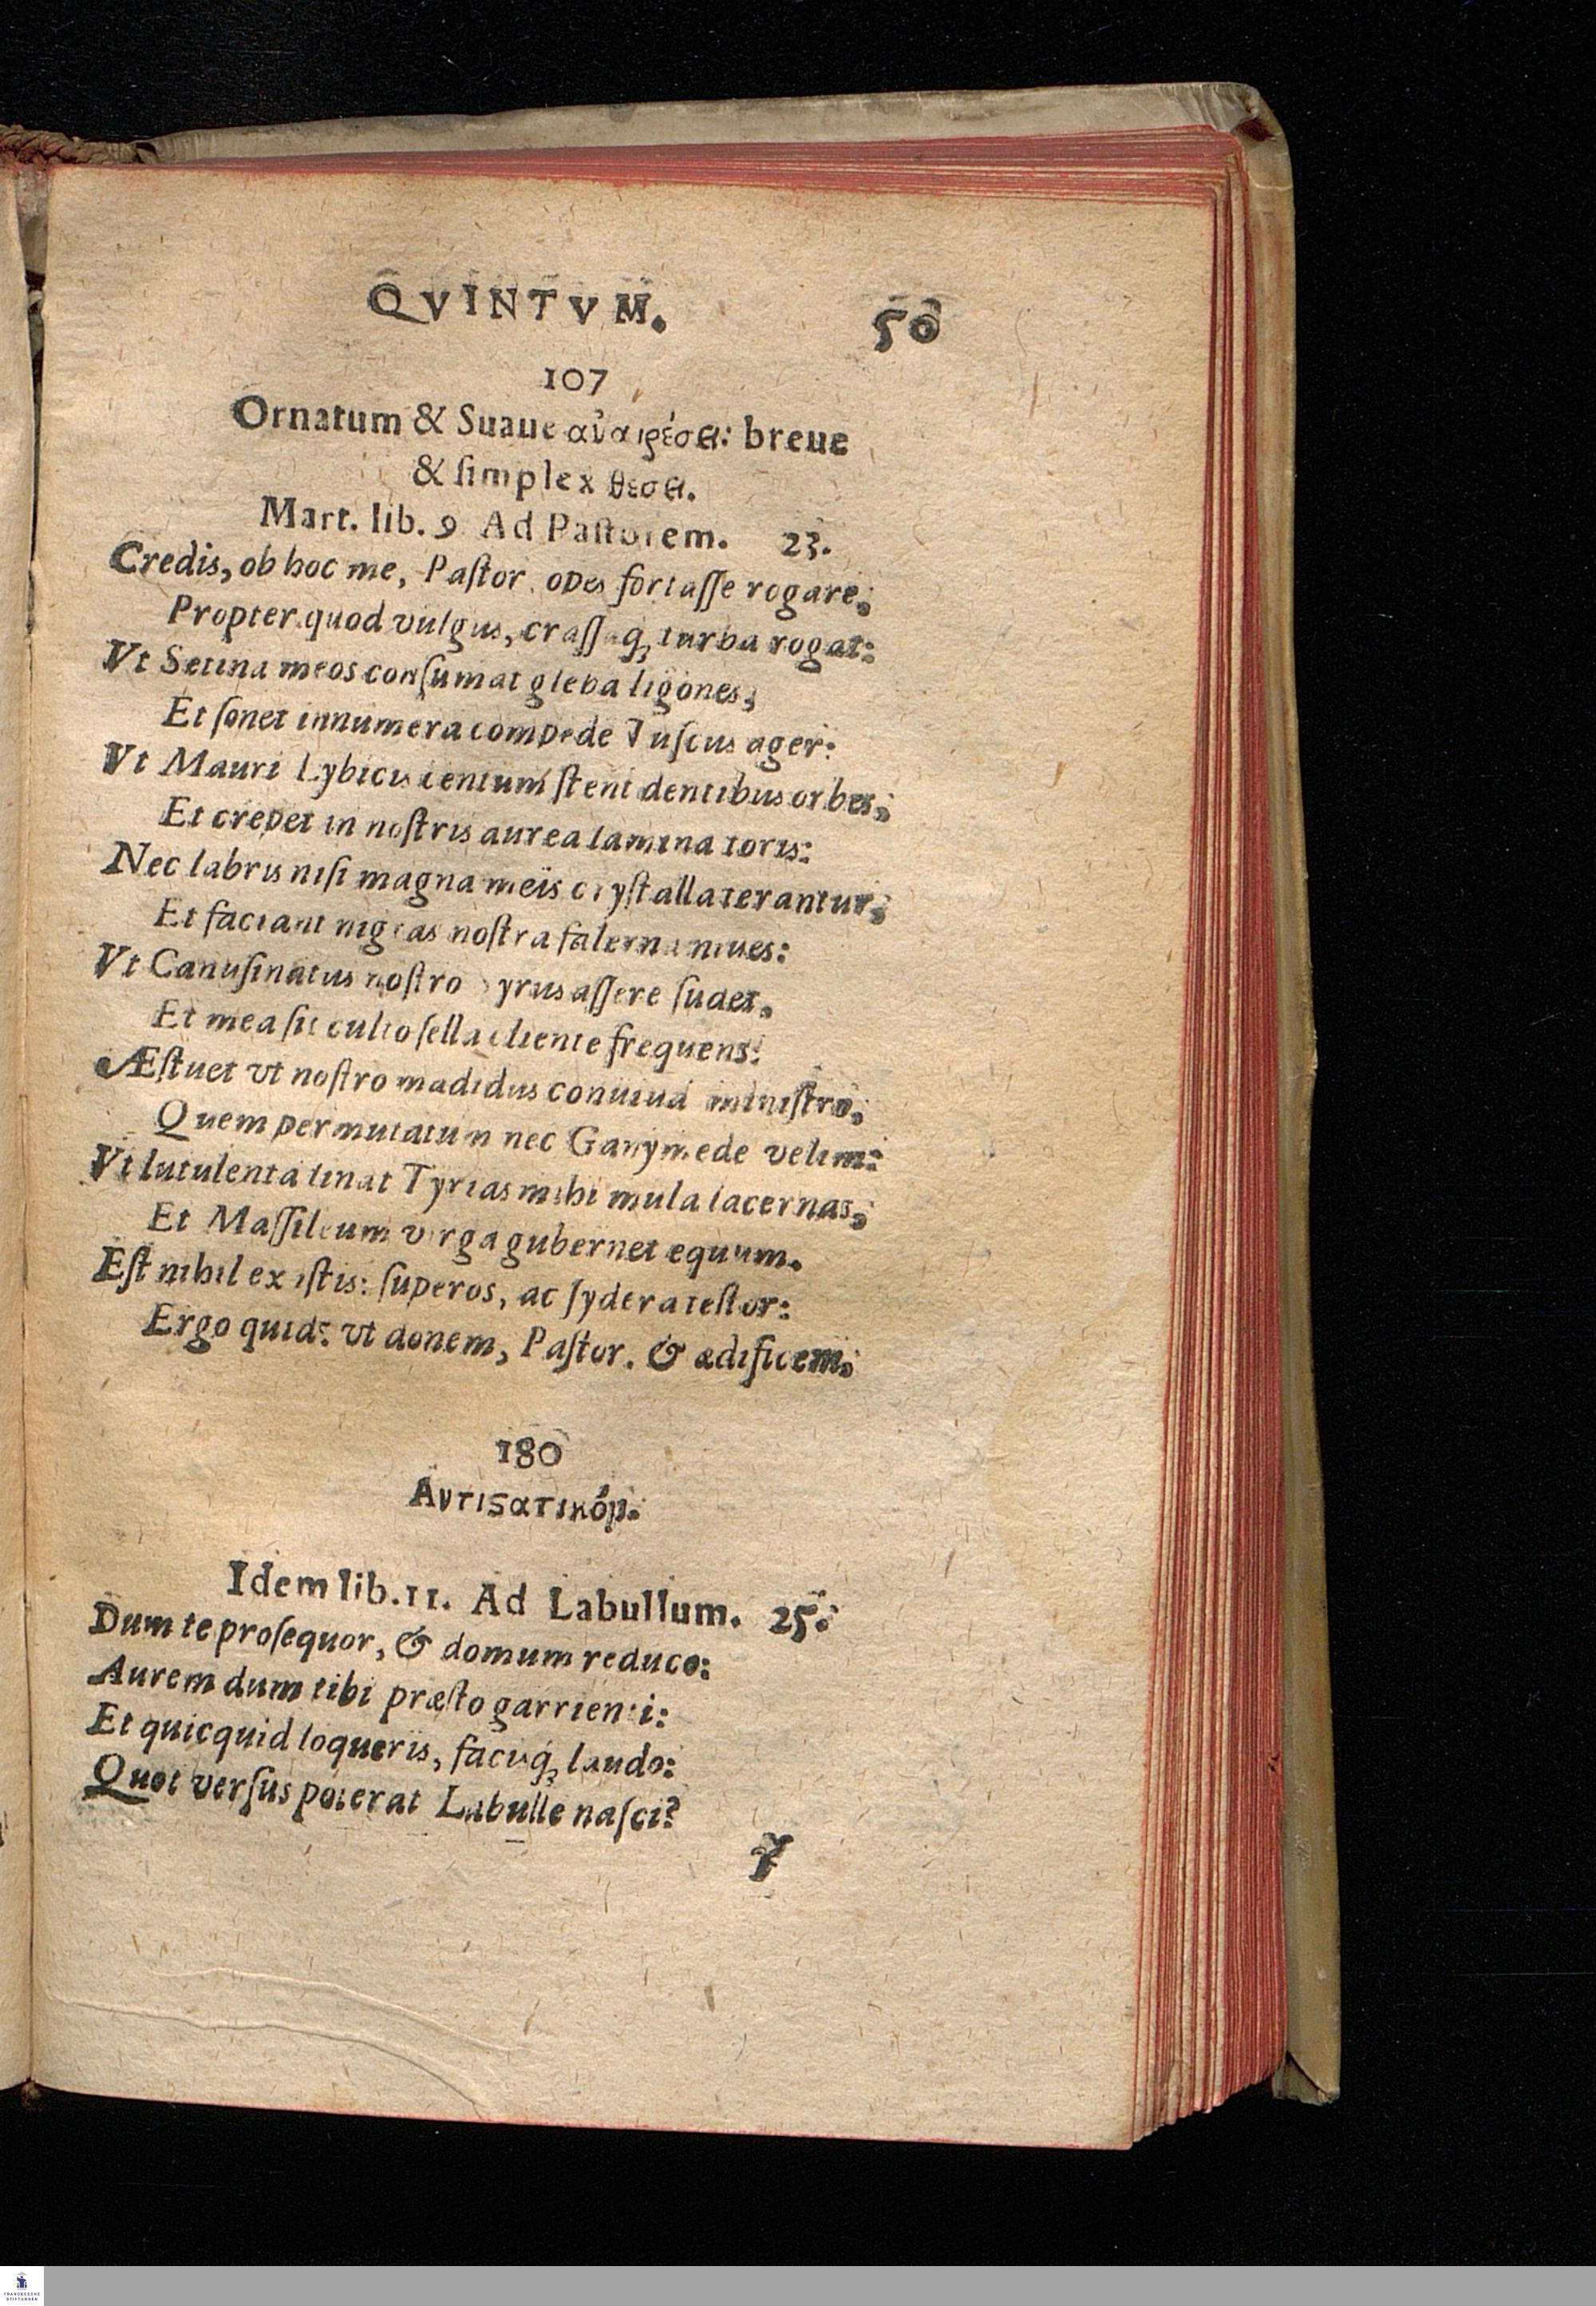 QVINTVM. 50
107
Ornatum & Suaue ἀναιρέσει: breue
& ſimplex θεσει.
Mart. lib. 9 Ad Paſtorem. 23.
Credis, ob hoc me, Paſtor, opes fortaſſe rogare,
Propter quod vulgus, craſſaq; turba rogat:
Vt Setina meos conſumat gleba ligones,
Et ſonet innumera compede Tuſcus ager:
Vt Mauri Lybicis centum ſtent dentibus orbes,
Et crepet in noſtris aurea lamina toris:
Nec labris niſi magna meis cryſtalla terantur,
Et faciant nigras noſtra falerna niues:
Vt Canuſinatus noſtro Syrus aſſere ſudet,
Et mea ſit culto ſella cliente frequens:
Æſtuet vt noſtro madidus conuiua miniſtro,
Quem permutatum nec Ganymede velim:
Vt lutulenta linat Tyrias mihi mula lacernas,
Et Maſſileum virga gubernet equum.
Eſt nihil ex iſtis: ſuperos, ac ſydera teſtor:
Ergo quid? vt donem, Paſtor. & ædificem.
180
Αντιςατικόν.
Idem lib. 11. Ad Labullum. 25.
Dum te proſequor, & domum reduco:
Aurem dum tibi præſto garrienti:
Et quicquid loqueris, facisq; laudo:
Quot verſus poterat Labulle naſci?